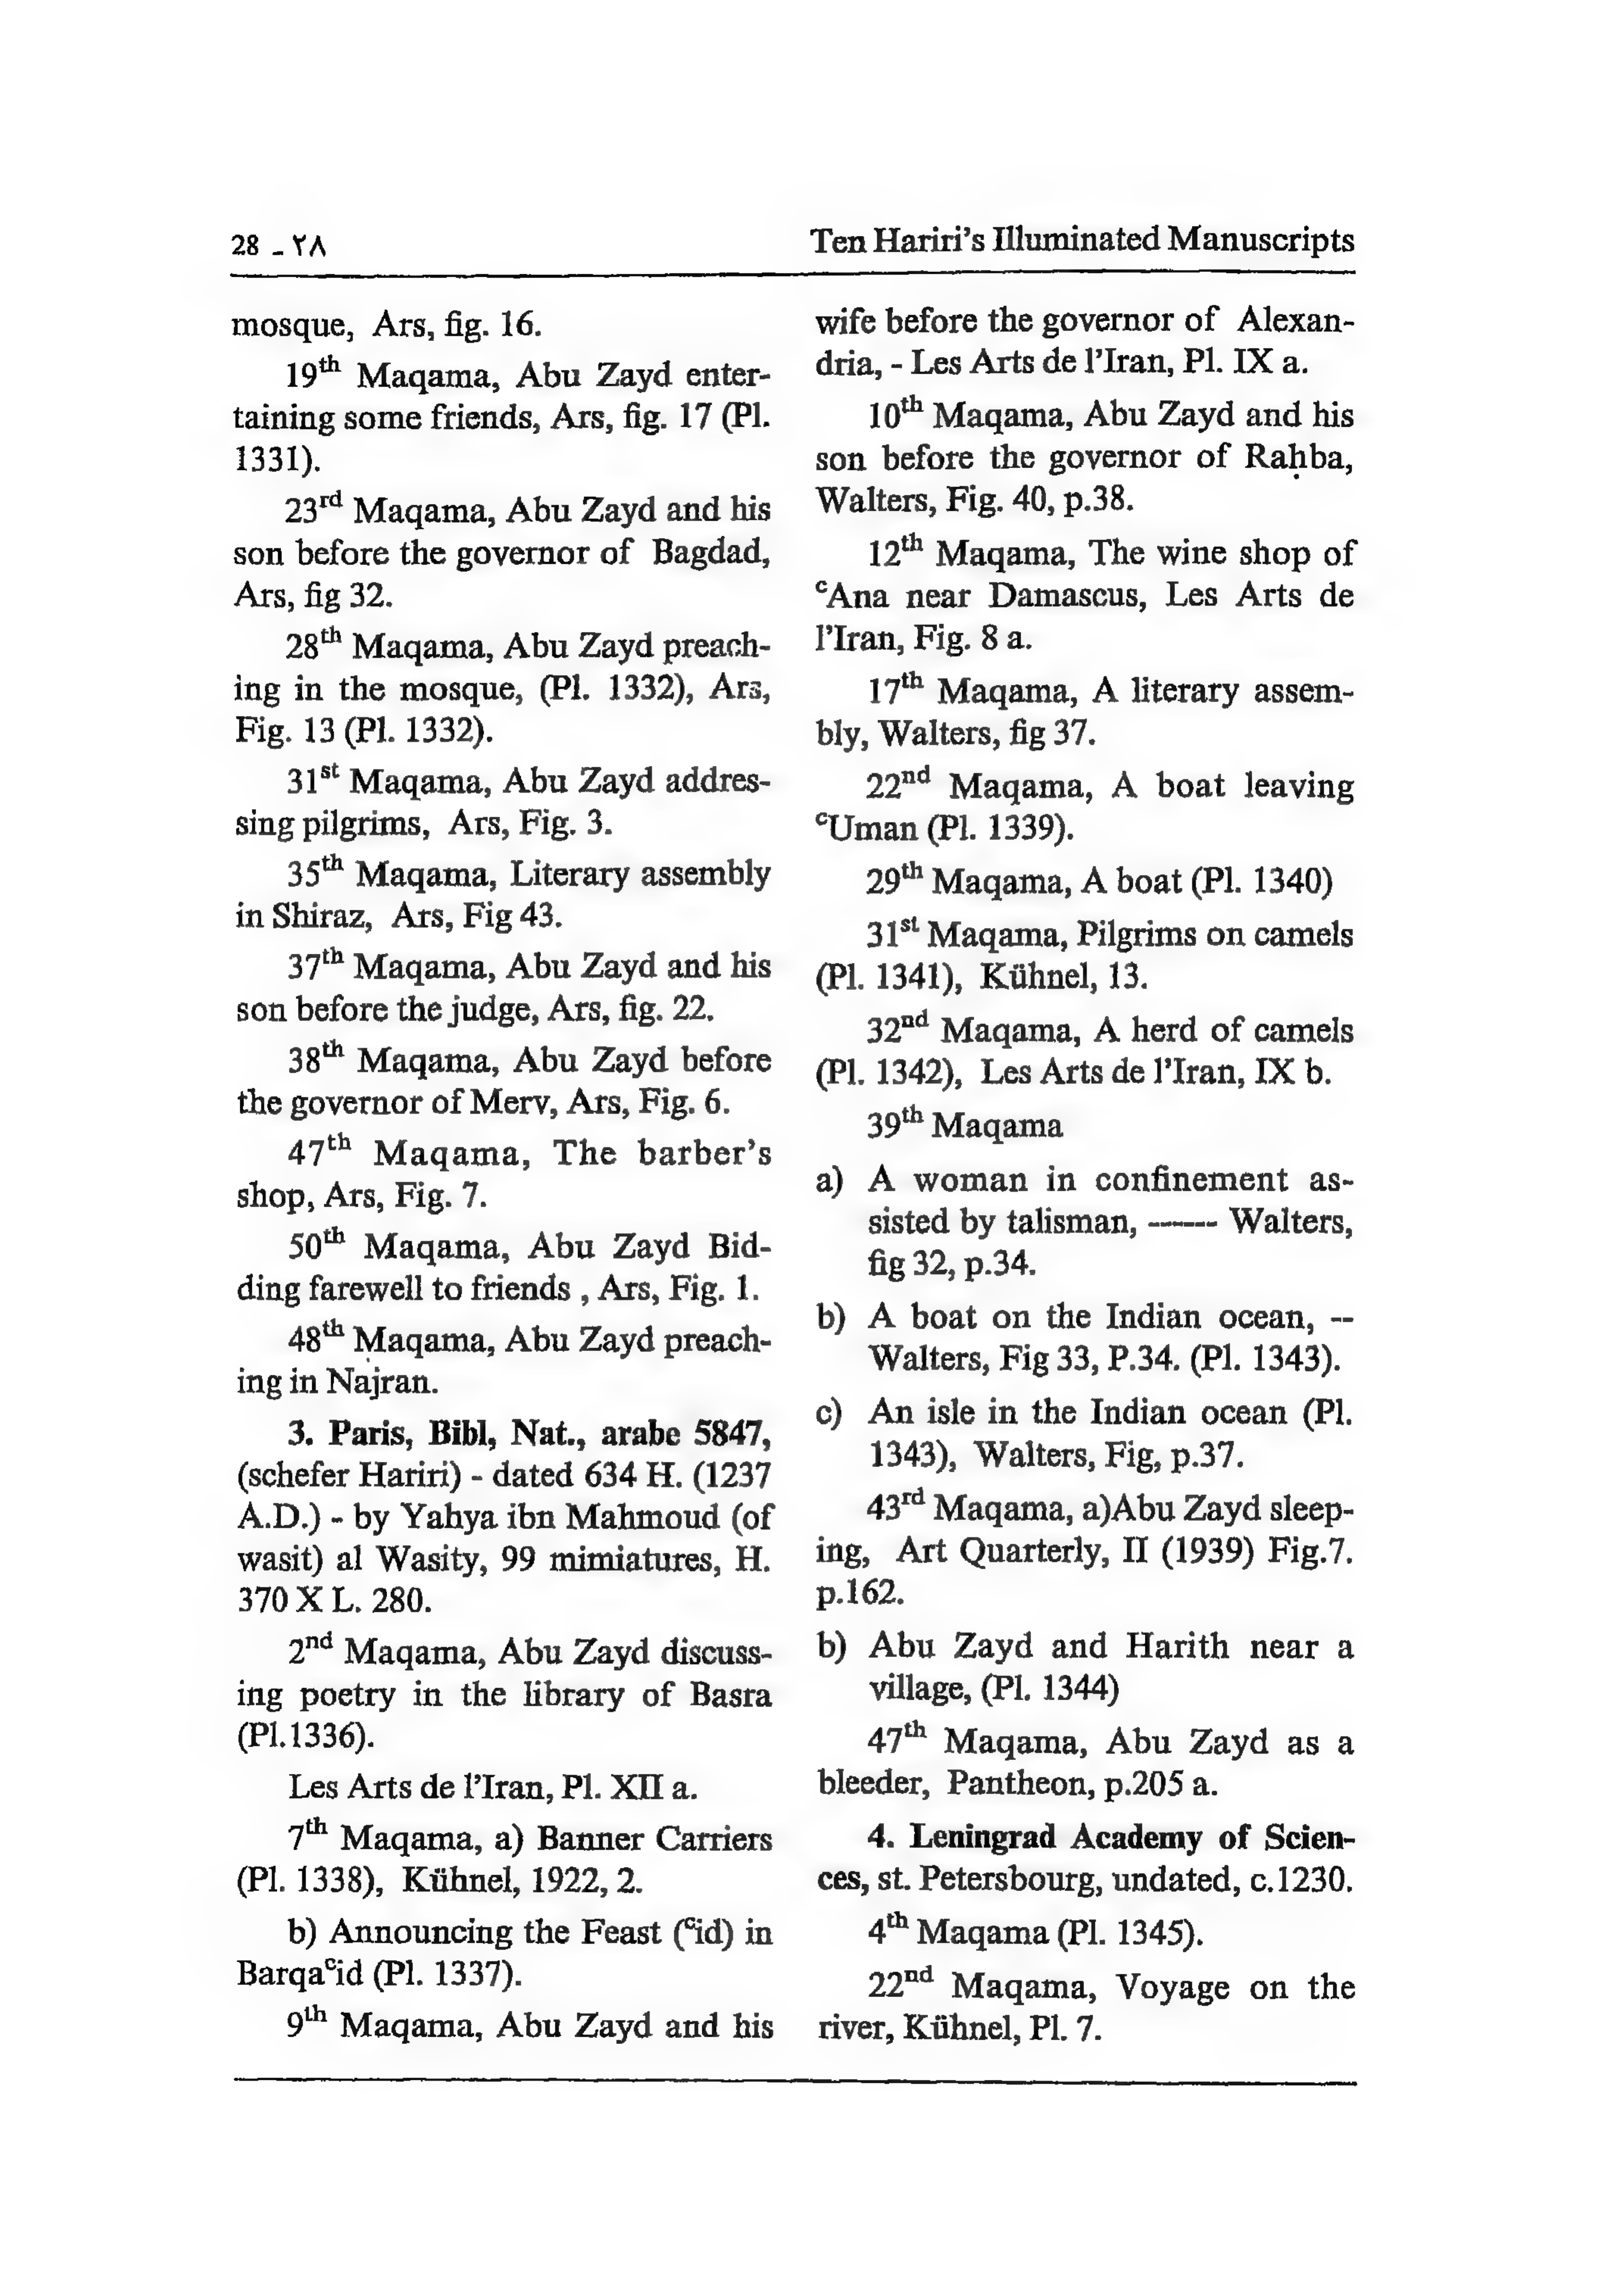 28 - ٢٨
Ten Hariri's Illuminated Manuscripts
mosque, Ars, fig. 16.
19th Maqama, Abu Zayd enter-
taining some friends, Ars, fig. 17 (Pl.
1331).
23rd Maqama, Abu Zayd and his
son before the governor of Bagdad,
Ars, fig 32.
28th Maqama, Abu Zayd preach-
ing in the mosque, (Pl. 1332), Ars,
Fig. 13 (Pl. 1332).
31st Maqama, Abu Zayd addres-
sing pilgrims, Ars, Fig. 3.
35th Maqama, Literary assembly
in Shiraz, Ars, Fig 43.
37th Maqama, Abu Zayd and his
son before the judge, Ars, fig. 22.
38th Maqama, Abu Zayd before
the governor of Merv, Ars, Fig. 6.
47th Maqama, The barber's
shop, Ars, Fig. 7.
50th Maqama, Abu Zayd Bid-
ding farewell to friends , Ars, Fig. 1.
48th Maqama, Abu Zayd preach-
ing in Najran.
3. Paris, Bibl, Nat., arabe 5847,
(schefer Hariri) - dated 634 H. (1237
A.D.) - by Yahya ibn Mahmoud (of
wasit) al Wasity, 99 mimiatures, H.
370 X L. 280.
2nd Maqama, Abu Zayd discuss-
ing poetry in the library of Basra
(Pl.1336).
Les Arts de l'Iran, Pl. XII a.
7th Maqama, a) Banner Carriers
(Pl. 1338), Kühnel, 1922, 2.
b) Announcing the Feast (ᶜid) in
Barqaᶜid (Pl. 1337).
9th Maqama, Abu Zayd and his
wife before the governor of Alexan-
dria, - Les Arts de l'Iran, Pl. IX a.
10th Maqama, Abu Zayd and his
son before the governor of Raḥba,
Walters, Fig. 40, p.38.
12th Maqama, The wine shop of
ᶜAna near Damascus, Les Arts de
l'Iran, Fig. 8 a.
17th Maqama, A literary assem-
bly, Walters, fig 37.
22nd Maqama, A boat leaving
ᶜUman (Pl. 1339).
29th Maqama, A boat (Pl. 1340)
31st Maqama, Pilgrims on camels
(Pl. 1341), Kühnel, 13.
32nd Maqama, A herd of camels
(Pl. 1342), Les Arts de l'Iran, IX b.
39th Maqama
a) A woman in confinement as-
sisted by talisman, —— Walters,
fig 32, p.34.
b) A boat on the Indian ocean, --
Walters, Fig 33, P.34. (Pl. 1343).
c) An isle in the Indian ocean (Pl.
1343), Walters, Fig, p.37.
43rd Maqama, a)Abu Zayd sleep-
ing, Art Quarterly, II (1939) Fig.7.
p.162.
b) Abu Zayd and Harith near a
village, (Pl. 1344)
47th Maqama, Abu Zayd as a
bleeder, Pantheon, p.205 a.
4. Leningrad Academy of Scien-
ces, st. Petersbourg, undated, c.1230.
4th Maqama (Pl. 1345).
22nd Maqama, Voyage on the
river, Kühnel, Pl. 7.